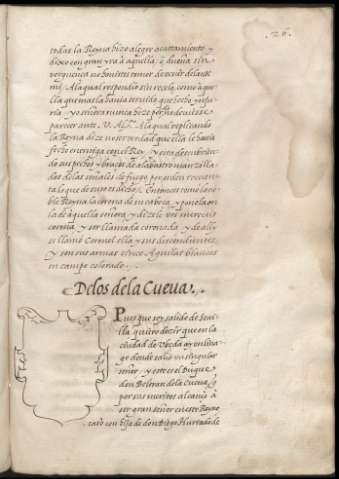 .26.
todas la Reyna hizo alegre acattamiento, y
dixeo con gran yra à aquella. q̃ dueña sin
verguença no houistes temor de venir delante
mi. A la qual respondio sin recelo, como aque
lla que mas la hauia seruido que hecho injuria
y o señora nunca hize porque deuiesse
parecer ante. V. Alt. A la qual replicando
la Reyna dize no es verdad que ella le hauia
fecho enemiga con el Rey. y esta descubriendo
sus pechos y braços de alabastro manzilla
dos de las señales de fuego
ta lo que de suso es dicho. Entonces tomo la no
ble Reyna la corona de su cabeça, y pone la en
la de aquella señora y dizele vos mereceis
corona, y ser llamada coronada, y de alli
se llamó Coronel ella y sus descendientes,
y son sus armas cinco Aguilas blancas
en campo colorado.
De los de la Cueua.
Pues que soy salido de Seui
lla, quiero dezir que en la
ciudad de Vbeda ay en lina
ge donde salio vn singular
señor. y este es el Duque
don Beltran de la Cueua, q̃
por sus meritos alcanço à
ser gran señor en este Reyno
caso con hija de don Diego Hurtado de